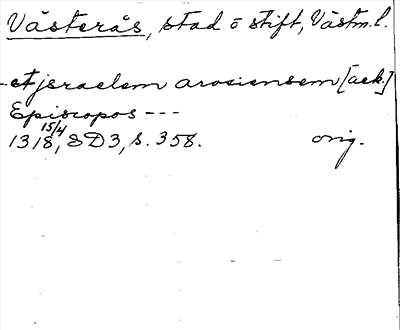 Västerås, stad o stift, Västm.l.
- et jsraelem arosiensem [ack.]
Episcopos ---
1318 15/4, SD3, s. 358. orig.